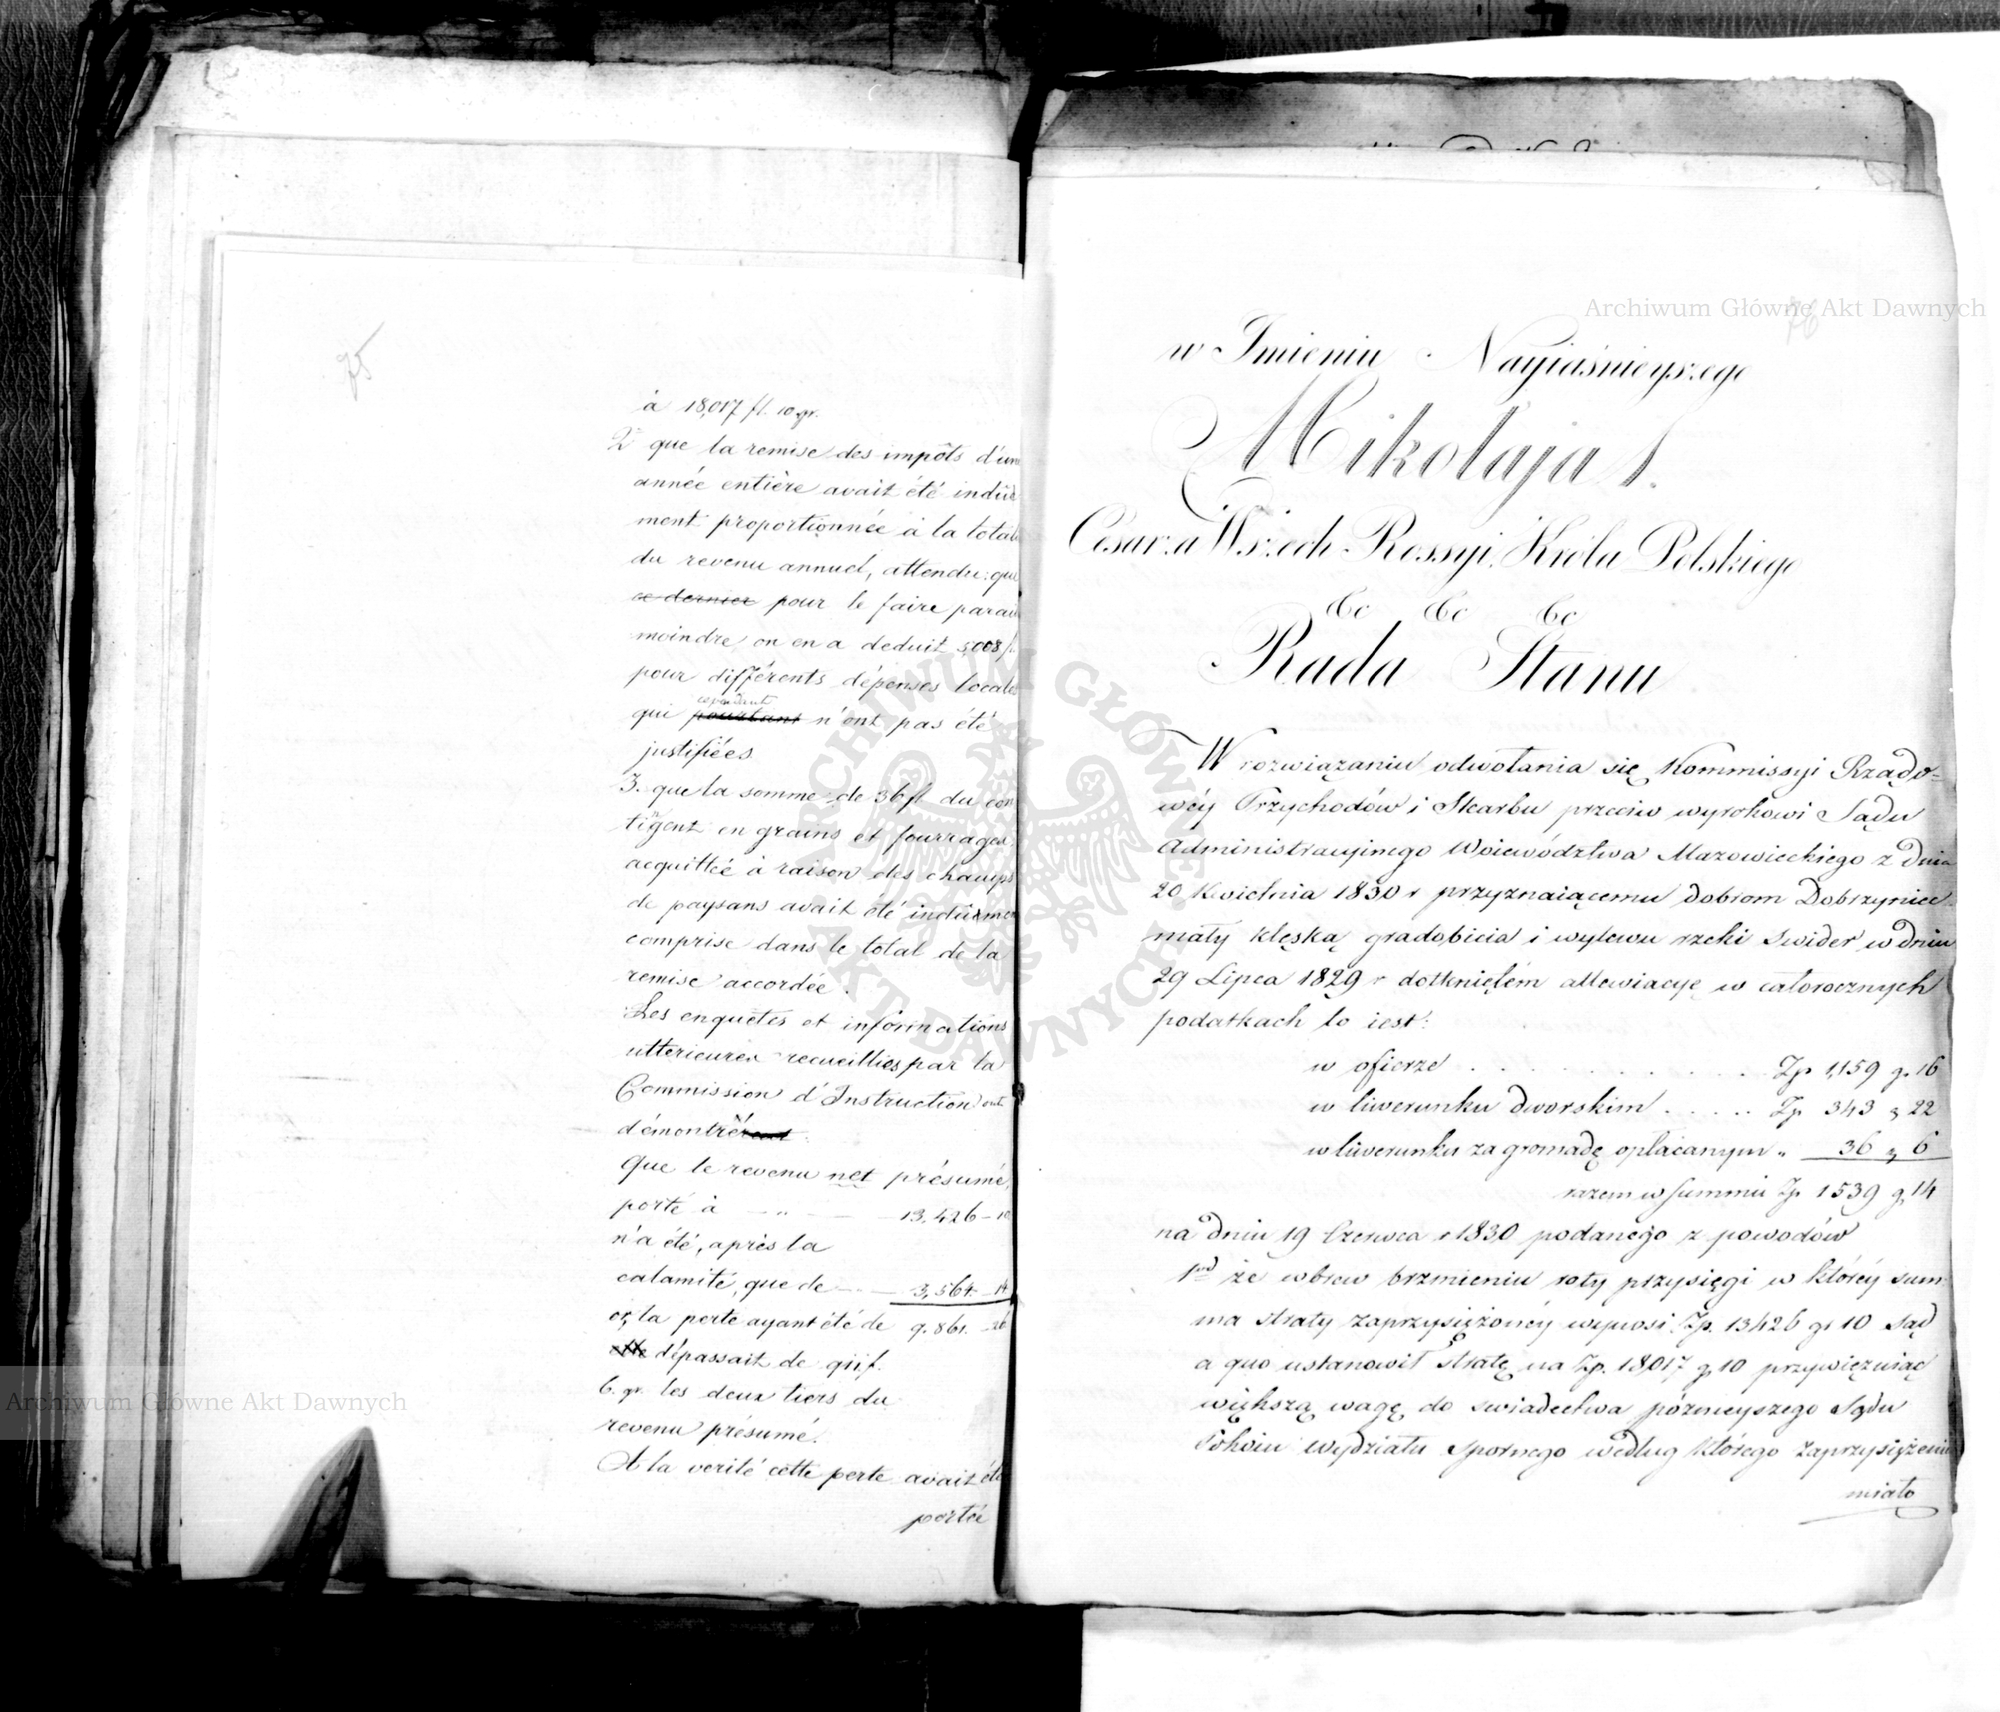 75
à 18,017 fl. 10 gr.
2° que la remise des impôts d'une
année entière avait été indû
ment proportionnée à la total
du revenu annuel, attendu que
ce dernier pour le faire parai
moindre, on en a deduit 5,008 f.
pour différents dépenses locales
cependant
qui pourtant n'ont pas été
justifiées
3. que la somme de 36 fl du con
tigent en grains et fourrages,
acquittée à raison des champs
de paysans avait été indûmen
comprise dans le total de la
remise accordée.
Les enquêtes et informations
ulterieures recueillies par la
Commission d'Instruction ont
démontré
Que le revenu net présumé,
porté à — „ — 13,426 – 10
n'a été, après la
calamité, que de — 3,564 – 14
or, la perte ayant été de 9.861. – 26
elle dépassait de 911 f.
6. gr. les deux tiers du
revenu présumé.
A la verité cette perte avait été
portée
Archiwum Główne Akt Dawnych
76
w Imieniu Nayiaśnieyszego
Mikołaja I.
Cesarza Wszech Rossyi, Króla Polskiego
&c &c &c
Rada Stanu
W rozwiązaniu odwołania się Kommissyi Rządo-
wéy Przychodów i Skarbu przeciw wyrokowi Sądu
Administracyjnego Woiewództwa Mazowieckiego z dnia
20 Kwietnia 1830 r przyznaiącemu dobrom Dobrzyniec
mały klęską gradobicia i wylewu rzeki Swider w dniu
29 Lipca 1829 r dotkniętém allewiacyę w całorocznych
podatkach to iest:
w ofierze . . . . . . . . . . . Zp 1,159 g. 16
w liwerunku dworskim . . . . . Zp 343 g 22
w liwerunku za gromadę opłacanym „ 36 g 6
razem w summie Zp 1539 g. 14
na dniu 19 Czerwca r 1830 podanego z powodów
1mo że wbrew brzmieniu roty przysięgi w któréy sum-
ma straty zaprzysiężonéy wynosi Zp. 13426 gr 10 Sąd
a quo ustanowił stratę na Zp. 18,017 g 10 przywięzuiąc
większą wagę do swiadectwa póżnieyszego Sądu
Pokoiu wydziału Spornego według którego zaprzysiężenie
miało
Archiwum Główne Akt Dawnych
ARCHIWUM GŁÓWNE AKT DAWNYCH